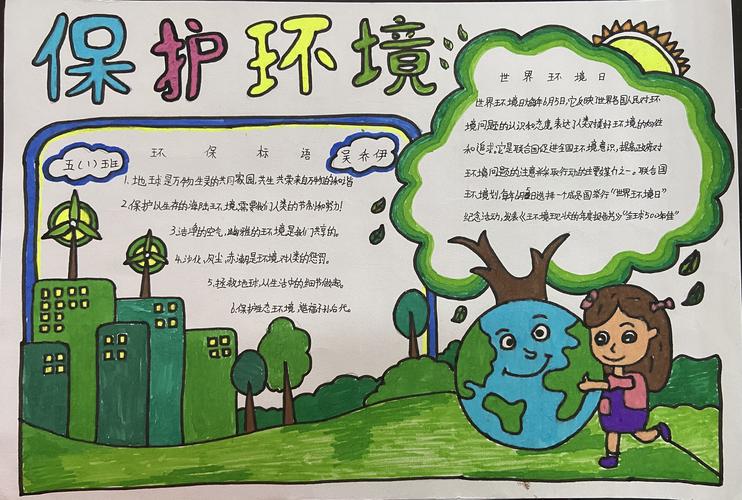 保护环境
五(1)班
吴乔伊
环保标语
1.地球是万物生灵的共同家园,共生共荣来自万物的和谐
2.保护以生存的海陆环境,需要我们人类的节制和努力!
3.洁净的空气,幽雅的环境是我们共享的。
4.沙化、风尘、赤潮是环境对人类的惩罚。
5.拯救地球,从生活中的细节做起。
6.保护生态环境,造福子孙后代。
世界环境日
世界环境日为每年6月5日,它反映了世界各国人民对环
境问题的认识和态度,表达了人类对美好环境的向往
和追求,它是联合国促进全国环境意识,提高政府对
环境问题的注意并采取行动的主要媒介之一。联合国
环境规划,每年6月5日选择一个成员国举行"世界环境日"
纪念活动,发表《环境现状的年度报告书》"全球500佳"